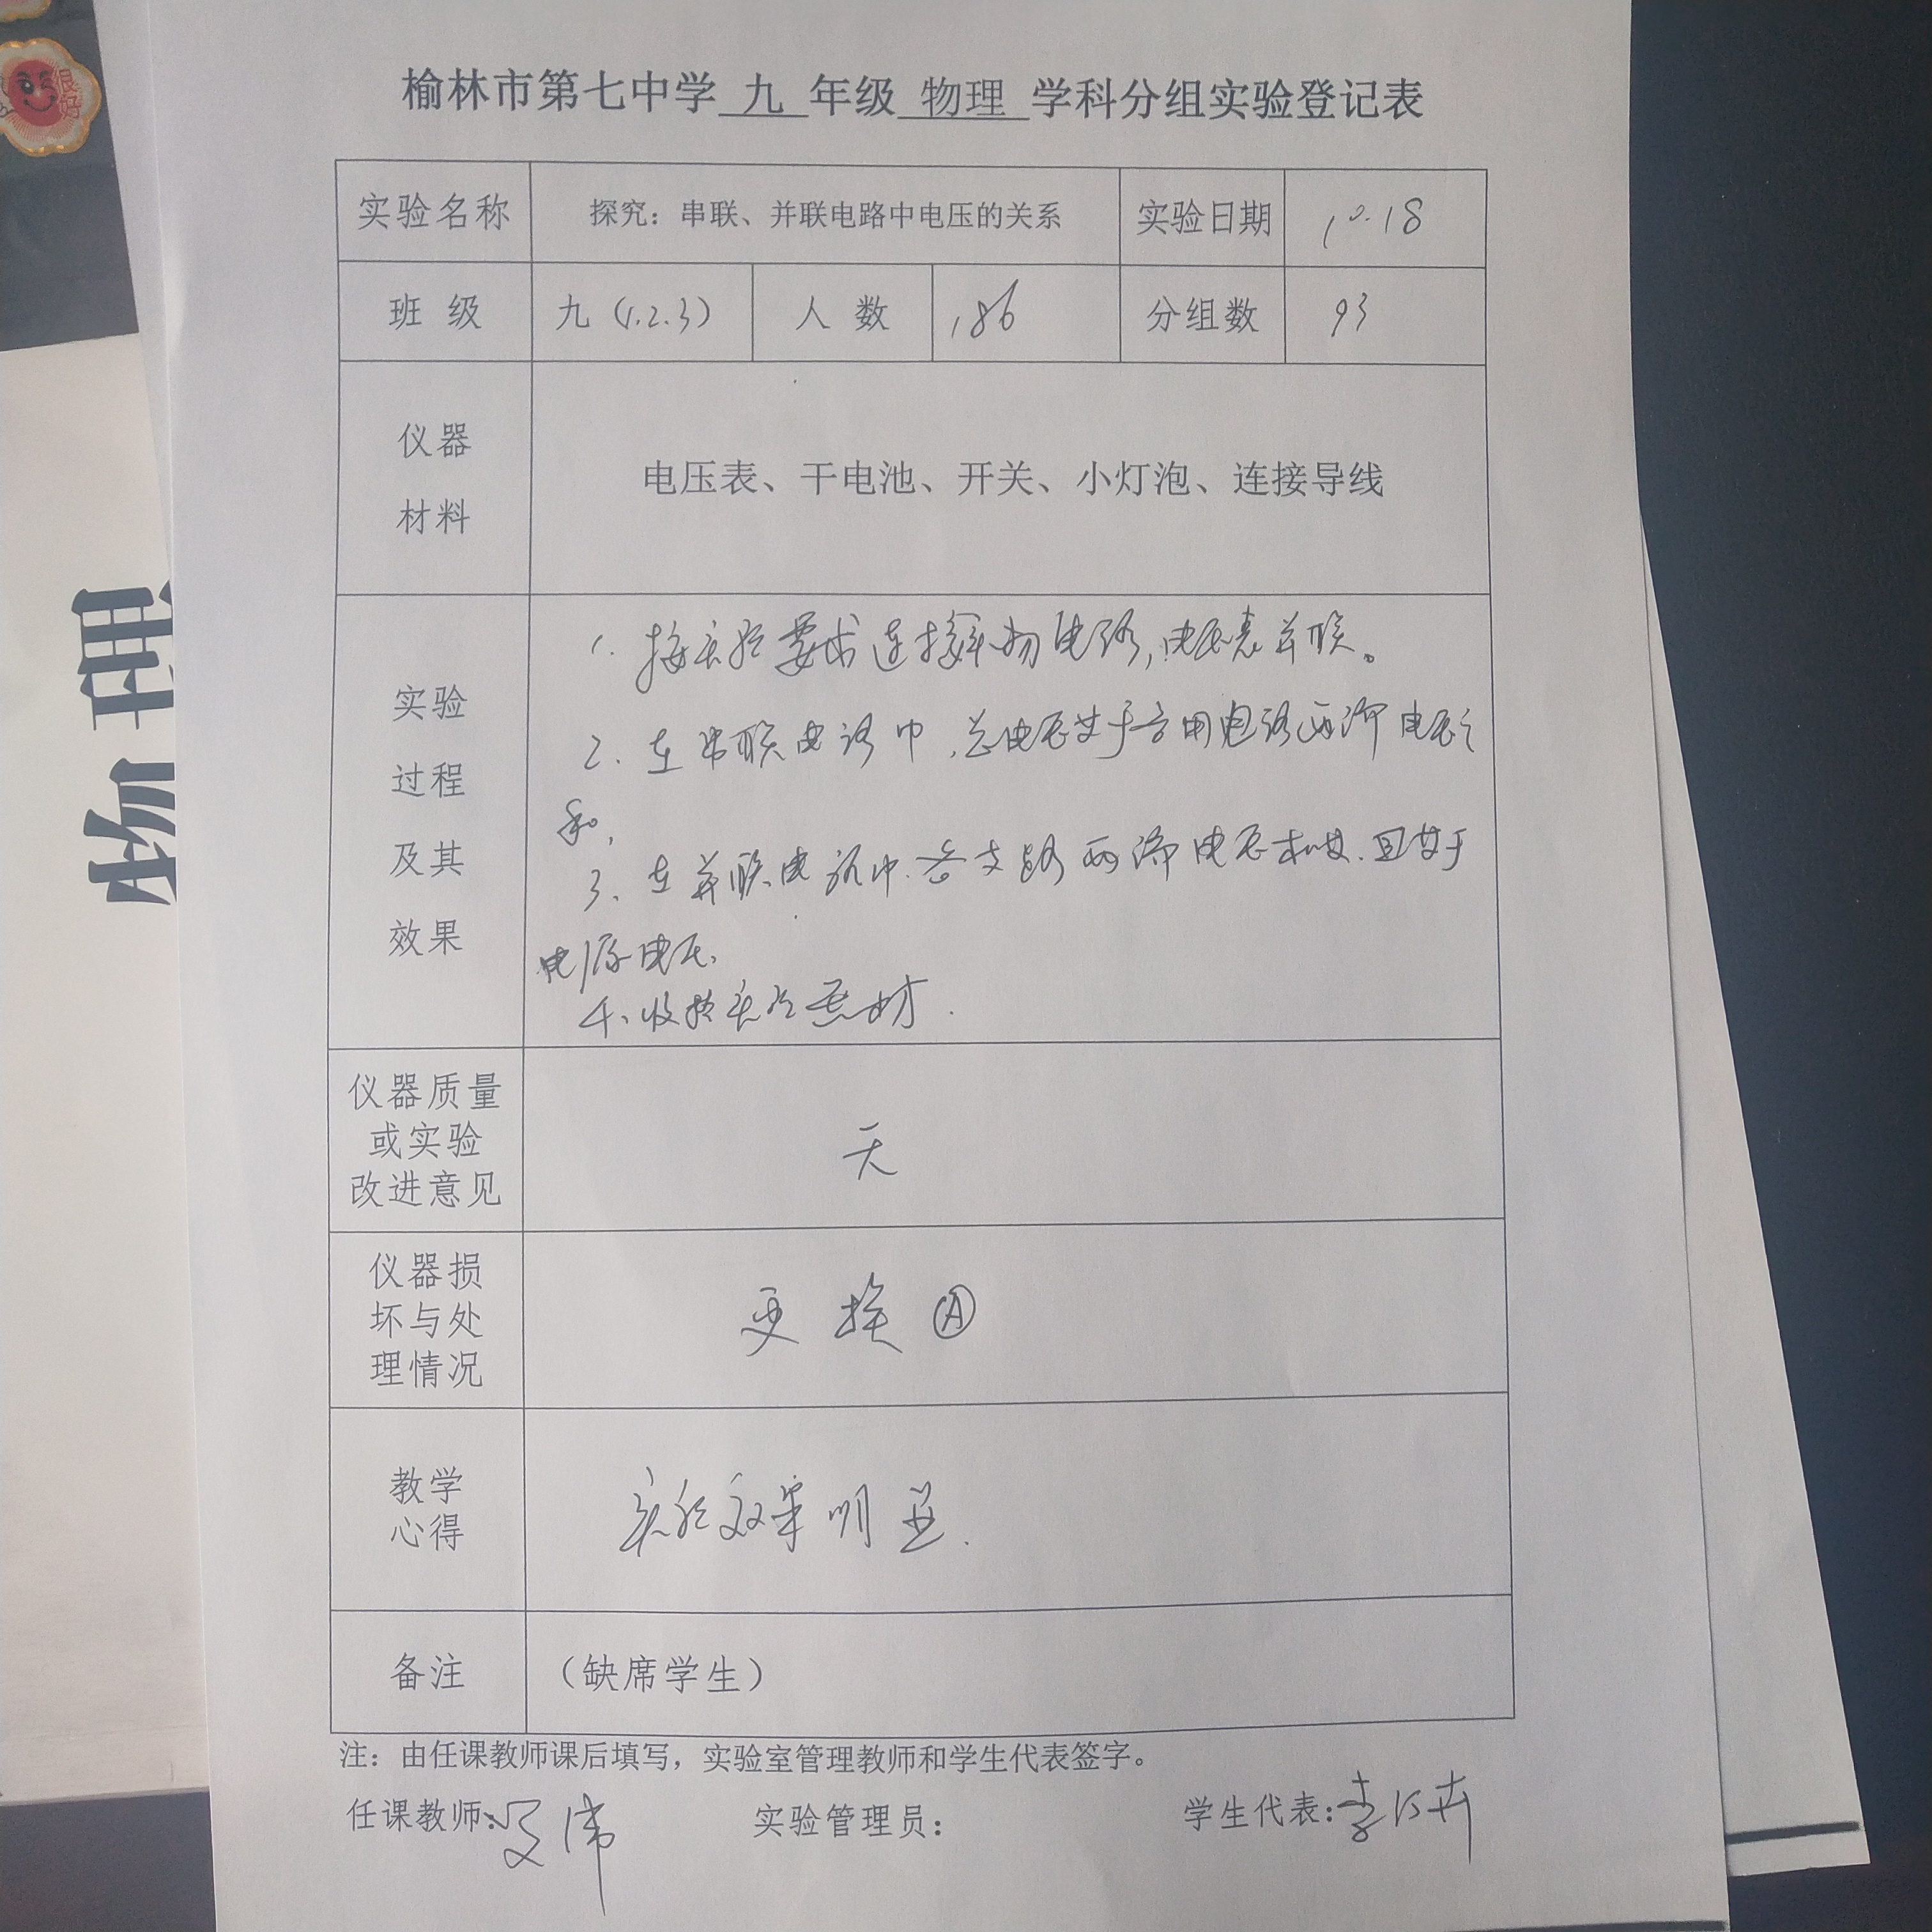 很好
物理
榆林市第七中学 九 年级 物理 学科分组实验登记表
实验名称 探究：串联、并联电路中电压的关系 实验日期 10.18
班 级 九（1.2.3） 人 数 186 分组数 93
仪器
材料
电压表、干电池、开关、小灯泡、连接导线
实验
过程
及其
效果
1. 按实验要求连接实物电路，电压表并联。
2. 在串联电路中，总电压等于各用电器两端电压之
和，
3、在并联电路中.各支路两端电压相等.且等于
电源电压、
4、收拾实验器材.
仪器质量
或实验
改进意见
无
仪器损
坏与处
理情况
更换Ⓐ
教学
心得
实验效果明显.
备注 （缺席学生）
注：由任课教师课后填写，实验室管理教师和学生代表签字。
任课教师： 实验管理员： 学生代表：李